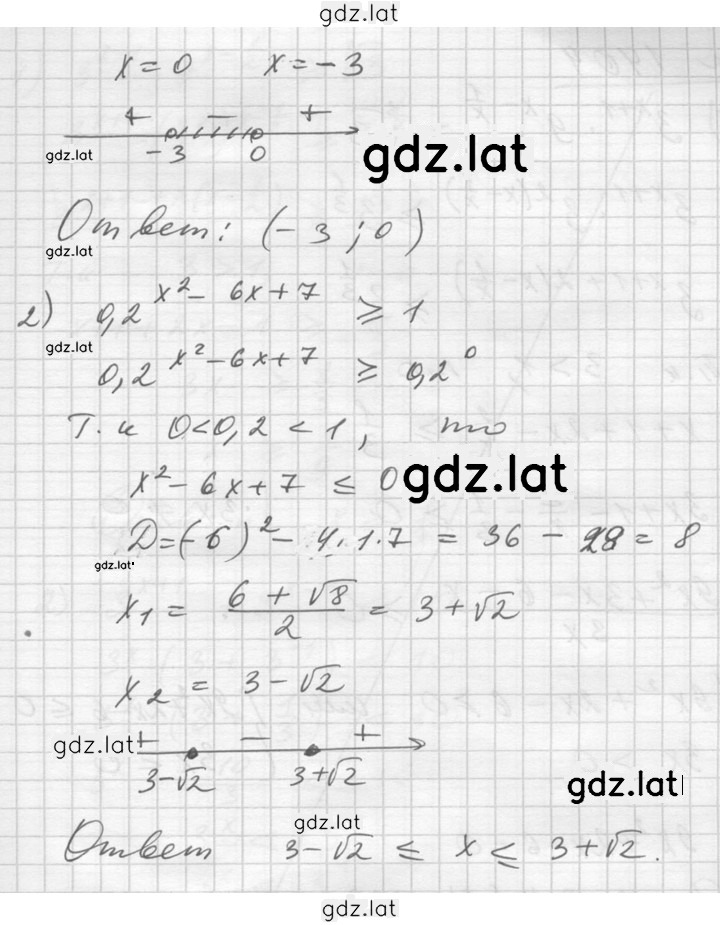 gdz.lat
x = 0 x = -3
+ - +
gdz.lat -3 0 gdz.lat
Ответ: (-3; 0)
gdz.lat
2) 0,2^(x² - 6x + 7) ⩾ 1
gdz.lat
0,2^(x² - 6x + 7) ⩾ 0,2^0
Т.к 0 < 0,2 < 1, то
x² - 6x + 7 ≤ 0 gdz.lat
D = (-6)² - 4·1·7 = 36 - 28 = 8
gdz.lat
x₁ = (6 + √8)/2 = 3 + √2
x₂ = 3 - √2
gdz.lat + - +
3-√2 3+√2 gdz.lat
gdz.lat
Ответ 3-√2 ≤ x ≤ 3+√2.
gdz.lat